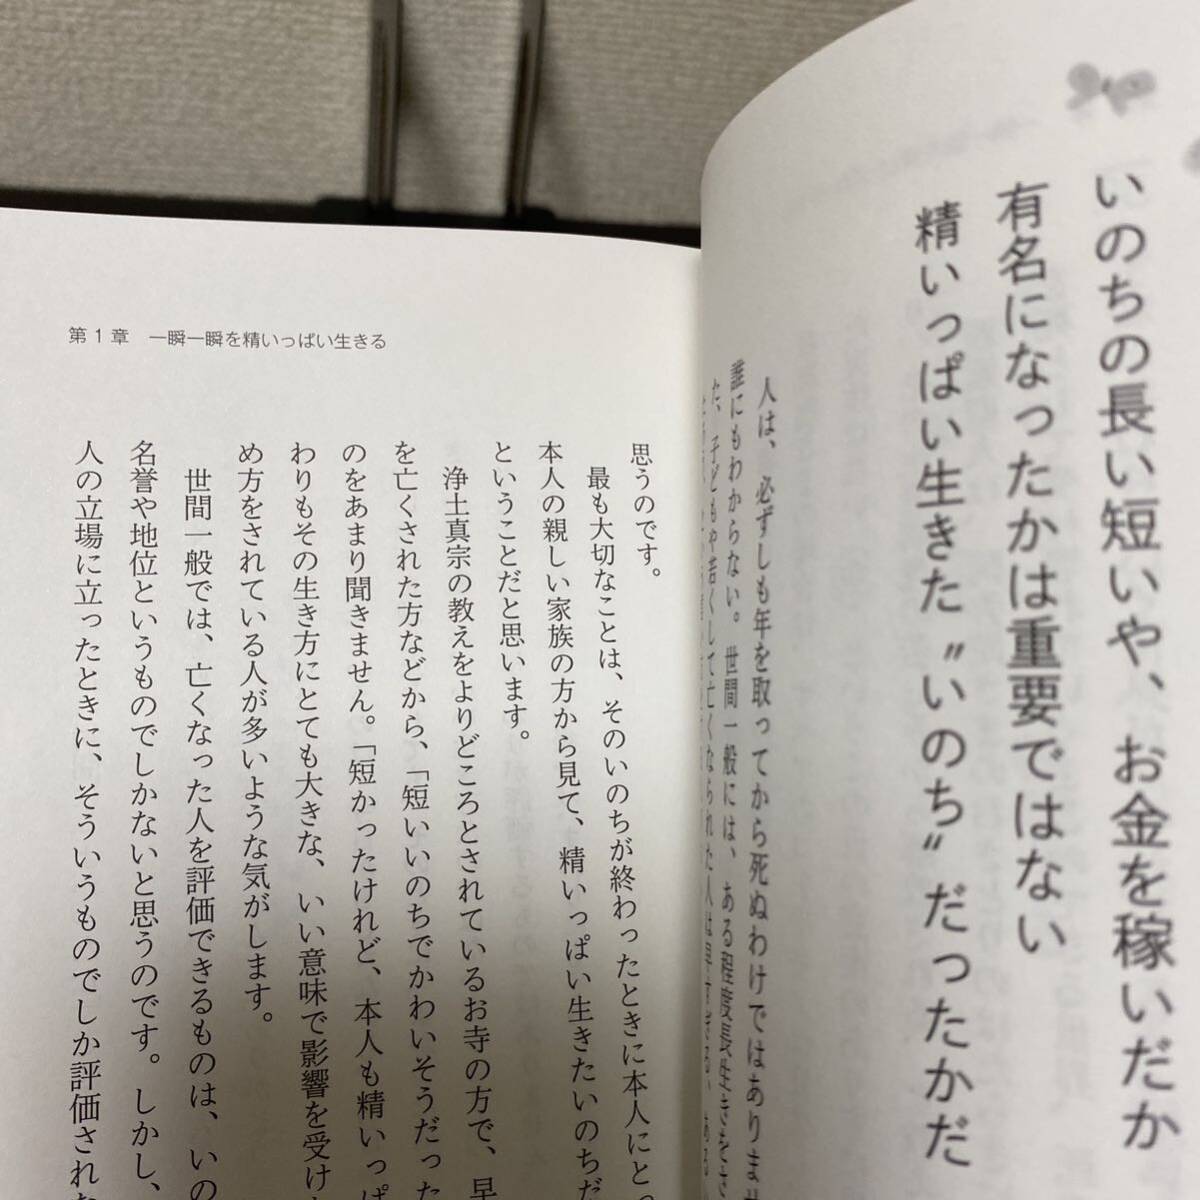 いのちの長い短いや、お金を稼いだか
有名になったかは重要ではない
精いっぱい生きた〝いのち〟だったかだ
人は、必ずしも年を取ってから死ぬわけではありませ
誰にもわからない。世間一般には、ある程度長生きをさ
た、子どもや若くして亡くなられた人は早すぎる、ある
第1章 一瞬一瞬を精いっぱい生きる
思うのです。
最も大切なことは、そのいのちが終わったときに本人にとっ
本人の親しい家族の方から見て、精いっぱい生きたいのちだ
ということだと思います。
浄土真宗の教えをよりどころとされているお寺の方で、早
を亡くされた方などから、「短いいのちでかわいそうだった
のをあまり聞きません。「短かったけれど、本人も精いっぱ
わりもその生き方にとても大きな、いい意味で影響を受け
め方をされている人が多いような気がします。
世間一般では、亡くなった人を評価できるものは、いの
名誉や地位というものでしかないと思うのです。しかし、
人の立場に立ったときに、そういうものでしか評価されな